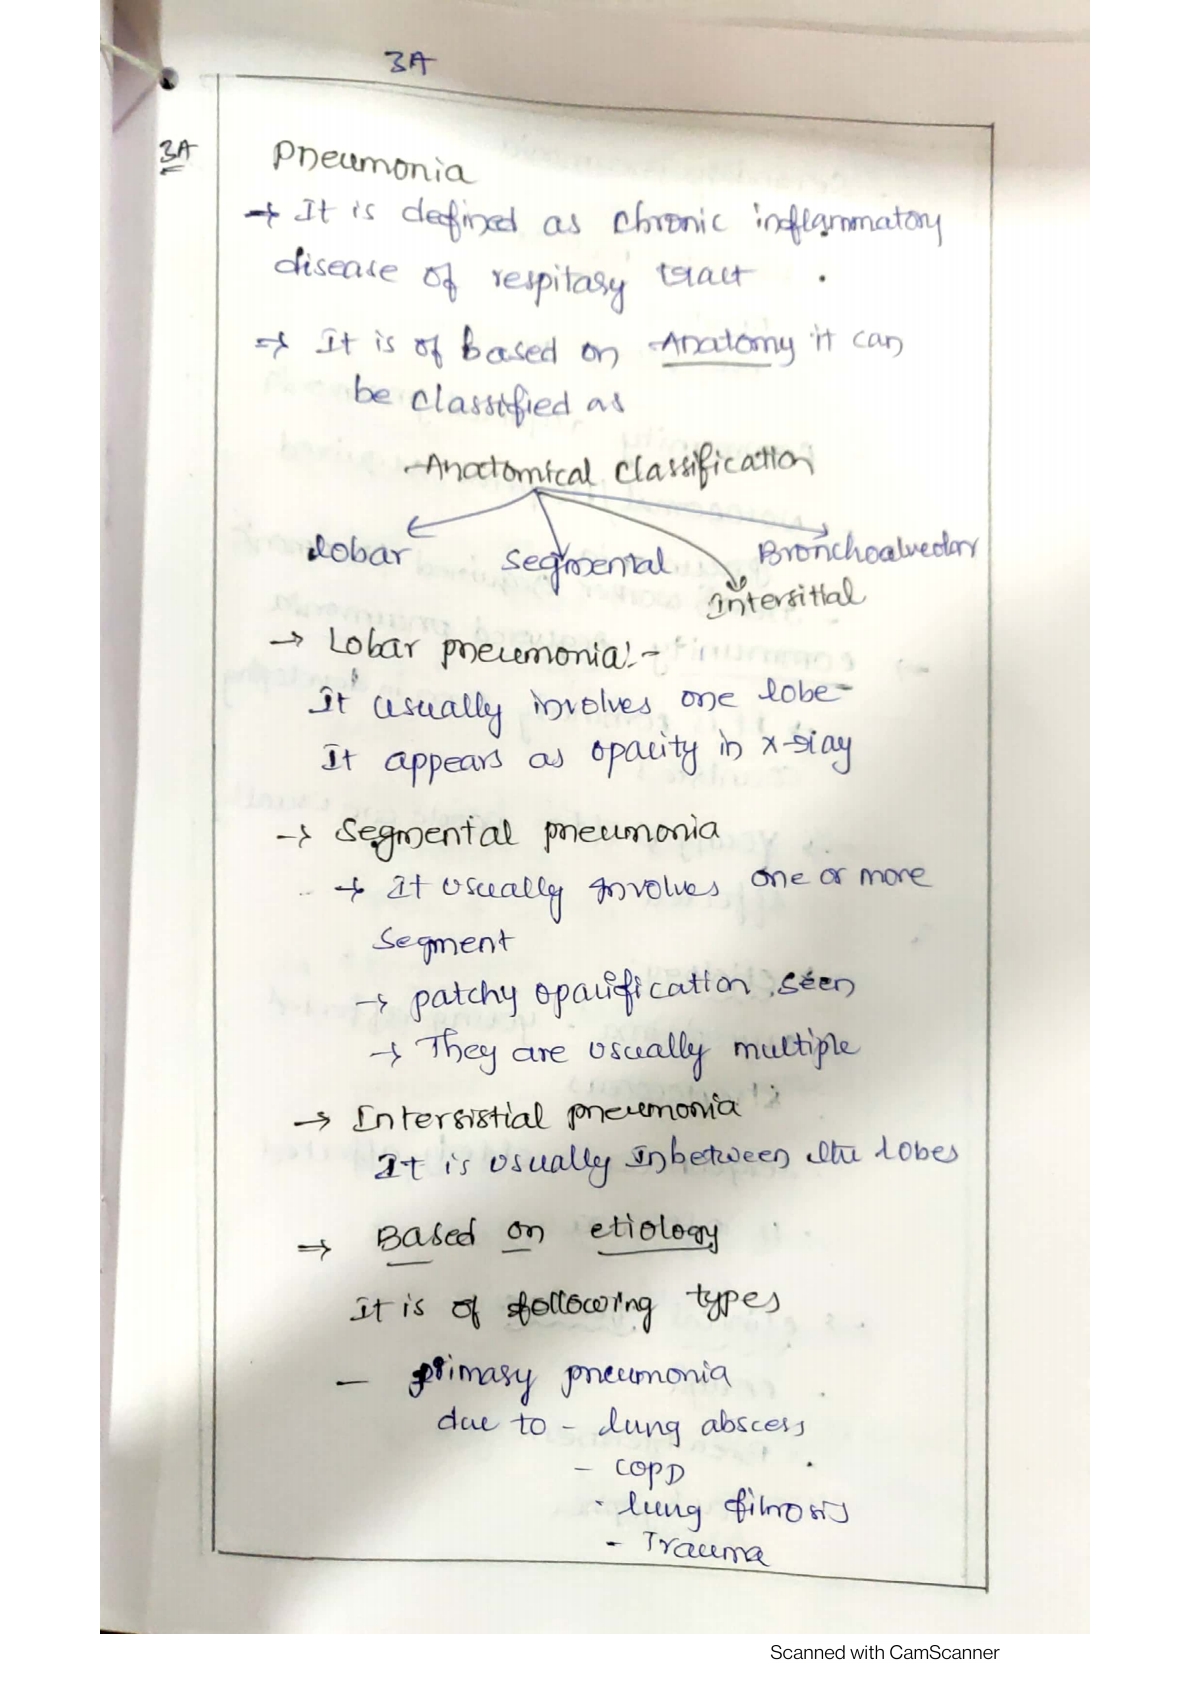 3A
3A
Pneumonia
→ It is defined as chronic inflammatory
disease of respitasy tract .
⇒ It is of Based on Anatomy it can
be classified as
Anatomical classification
lobar
segmental
Bronchoalveolar
Intersitial
→ Lobar pneumonia:-
It usually involves one lobe
It appears as opacity in x-ray
→ Segmental pneumonia
→ It usually involves one or more
segment
→ patchy opacification seen
→ They are usually multiple
→ Intersistial pneumonia
It is usually inbetween the lobes
⇒ Based on etiology
It is of following types
- primasy pneumonia
due to - lung abscess
- COPD
- lung fibrosis
- Trauma
Scanned with CamScanner